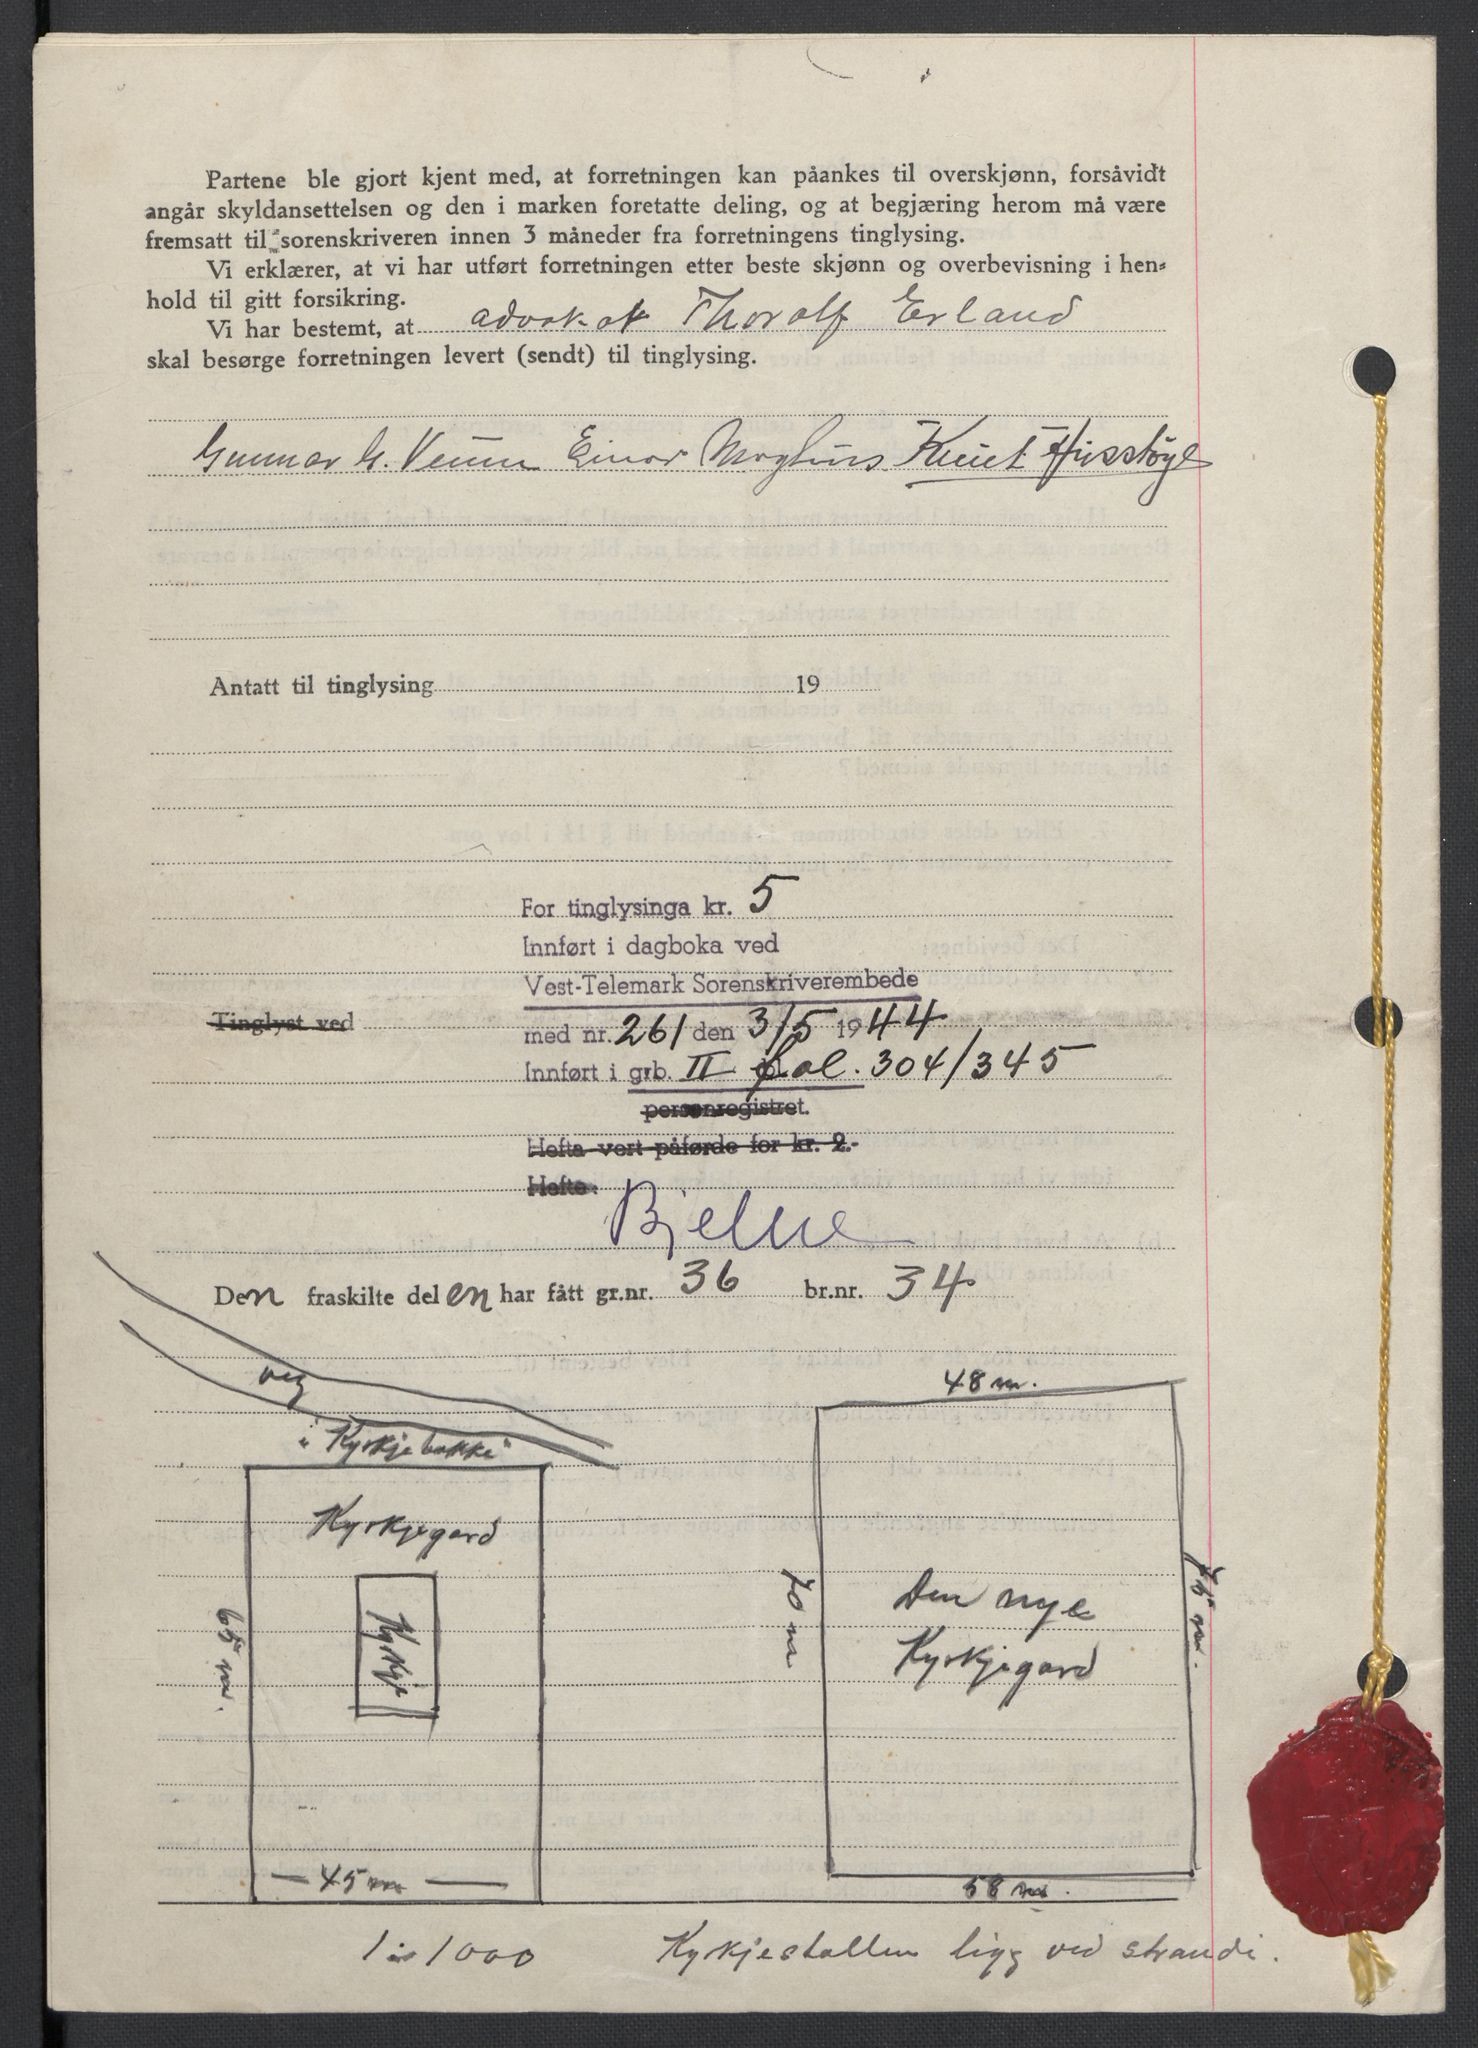 Partene ble gjort kjent med, at forretningen kan påankes til overskjønn, forsåvidt
angår skyldansettelsen og den i marken foretatte deling, og at begjæring herom må være
fremsatt til sorenskriveren innen 3 måneder fra forretningens tinglysing.
Vi erklærer, at vi har utført forretningen etter beste skjønn og overbevisning i hen-
hold til gitt forsikring.
Vi har bestemt, at advokat Thorolf Erland
skal besørge forretningen levert (sendt) til tinglysing.
Gunnar G. Einar Knut Husstøyl
Antatt til tinglysing 19
For tinglysinga kr. 5
Innført i dagboka ved
Vest-Telemark Sorenskriverembede
Tinglyst ved
med nr. 261 den 3/5 1944
Innført i grb. II fol. 304/345
personregistret.
Hefta vert påførde for kr. 2.-
Hefte:
Den fraskilte delen har fått gr.nr. 36 br.nr. 34
veg
"Kyrkjebakke"
48 m.
Kyrkjegard
Kyrkje
65 m.
45 m
70 m
Den nye
Kyrkjegard
75 m.
58 m.
1:1000
Kyrkjestallen ligg ved strandi.